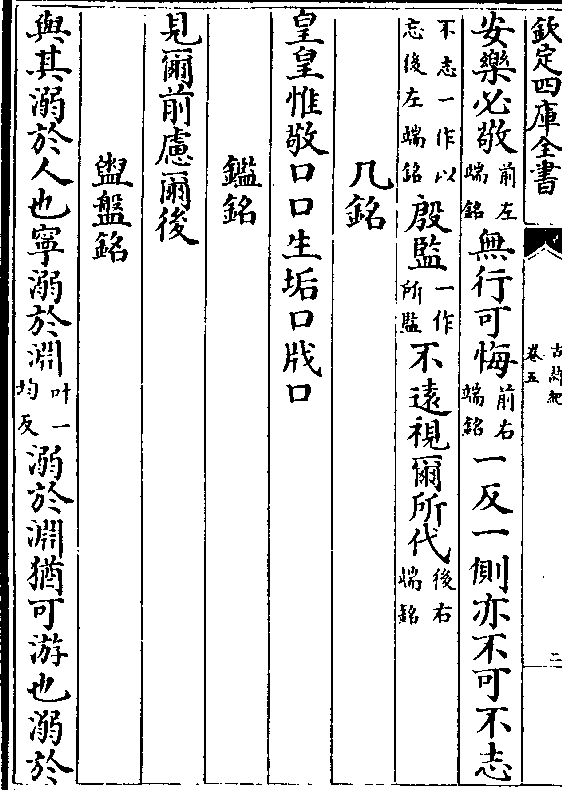 欽定四庫全書
古詩紀
卷五
二
安樂必敬前左端銘無行可悔前右端銘一反一側亦不可不志
不志一作以忘後左端銘殷監一作所監不遠視爾所代後右端銘
几銘
皇皇惟敬口口生㖃口戕口
鑑銘
見爾前慮爾後
盥盤銘
與其溺於人也寧溺於淵叶一均反溺於淵猶可游也溺於